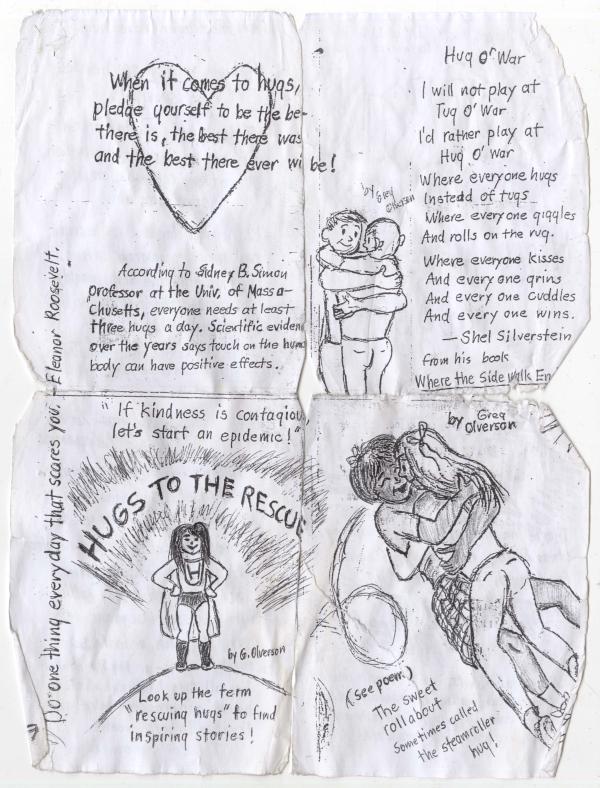 When it comes to hugs,
pledge yourself to be the be-
there is, the best there was
and the best there ever wi be!
According to Sidney B. Simon
professor at the Univ, of Massa-
chusetts, everyone needs at least
three hugs a day. Scientific eviden
over the years says touch on the huma
body can have positive effects.
Hug O' War
I will not play at
Tug O' War
I'd rather play at
Hug O' War
Where everyone hugs
Instead of tugs
Where everyone giggles
And rolls on the rug.
Where everyone kisses
And every one grins
And every one cuddles
And every one wins.
—Shel Silverstein
from his book
Where the Side walk En
by Greg
Do one thing everyday that scares you. —Eleanor Roosevelt.
"If kindness is contagiou
let's start an epidemic!"
HUGS TO THE RESCUE
by G. Olverson
"Look up the term
"rescuing hugs" to find
inspiring stories!
by Greg
Olverson
(see poem.)
The sweet
rollabout
Sometimes called
the steamroller
hug!